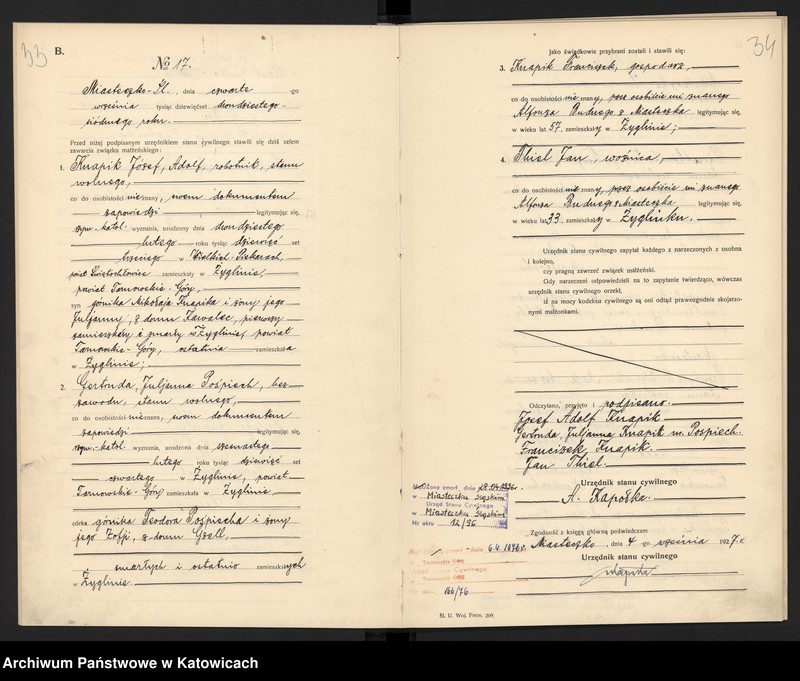 33
B.
No 17.
Miasteczko-Śl., dnia czwarte -go
września tysiąc dziewięćset dwudziestego-
siódmego roku.
Przed niżej podpisanym urzędnikiem stanu cywilnego stawili się dziś celem
zawarcia związku małżeńskiego:
1. Knapik Józef, Adolf, robotnik, stanu
wolnego,
co do osobistości nieznany, swem dokumentem
zapowiedzi legitymujący się,
rzym.-katol. wyznania, urodzony dnia dwudziestego
lutego roku tysiąc dziewięć set
trzeciego w Wielkich-Piekarach,
powiat Świętochłowice zamieszkały w Żyglinie,
powiat Tarnowskie-Góry,
syn górnika Mikołaja Knapika i żony jego
Juljanny, z domu Kawalec, pierwszy
zamieszkały i zmarły w Żyglinie, powiat
Tarnowskie-Góry, ostatnia zamieszkała
w Żyglinie;
2. Gertruda, Juljanna Pośpiech, bez
zawodu, stanu wolnego,
co do osobistości nieznana, swem dokumentem
zapowiedzi legitymująca się,
rzym.-katol. wyznania, urodzona dnia szesnastego
lutego roku tysiąc dziewięć set
czwartego w Żyglinie, powiat
Tarnowskie-Góry zamieszkała w Żyglinie
córka górnika Teodora Pośpiecha i żony
jego Zofji, z domu Gsell,
zmarłych i ostatnio zamieszkałych
w Żyglinie
34
Jako świadkowie przybrani zostali i stawili się:
3. Knapik Franciszek, gospodarz,
co do osobistości nie znany, przez osobiście mi znanego
Alfonza Budnego z Miasteczka legitymujący się,
w wieku lat 57, zamieszkały w Żyglinie;
4. Thiel Jan, woźnica,
co do osobistości nie znany, przez osobiście mi znanego
Alfonza Budnego z Miasteczka legitymujący się,
w wieku lat 33, zamieszkały w Żyglinku.
Urzędnik stanu cywilnego zapytał każdego z narzeczonych z osobna
i kolejno,
czy pragną zawrzeć związek małżeński.
Gdy narzeczeni odpowiedzieli na to zapytanie twierdząco, wówczas
urzędnik stanu cywilnego orzekł,
iż na mocy kodeksu cywilnego są oni odtąd prawozgodnie skojarzo-
nymi małżonkami.
Odczytano, przyjęto i podpisano.
Józef Adolf Knapik
Gertruda, Juljanna Knapik ur. Pośpiech.
Franciszek Knapik.
Jan Thiel.
Urzędnik stanu cywilnego
A. Kapołka.
Zgodność z księgą główną poświadczam
Miasteczko, dnia 4 -go września 1927 r.
Urzędnik stanu cywilnego
w Miasteczku Śląskim
Urząd Stanu Cywilnego
w Miasteczku Śląskim
Nr aktu 12/96
6.4.1976 r.
166/76
Śl. U. Woj. Form. 209.
Archiwum Państwowe w Katowicach